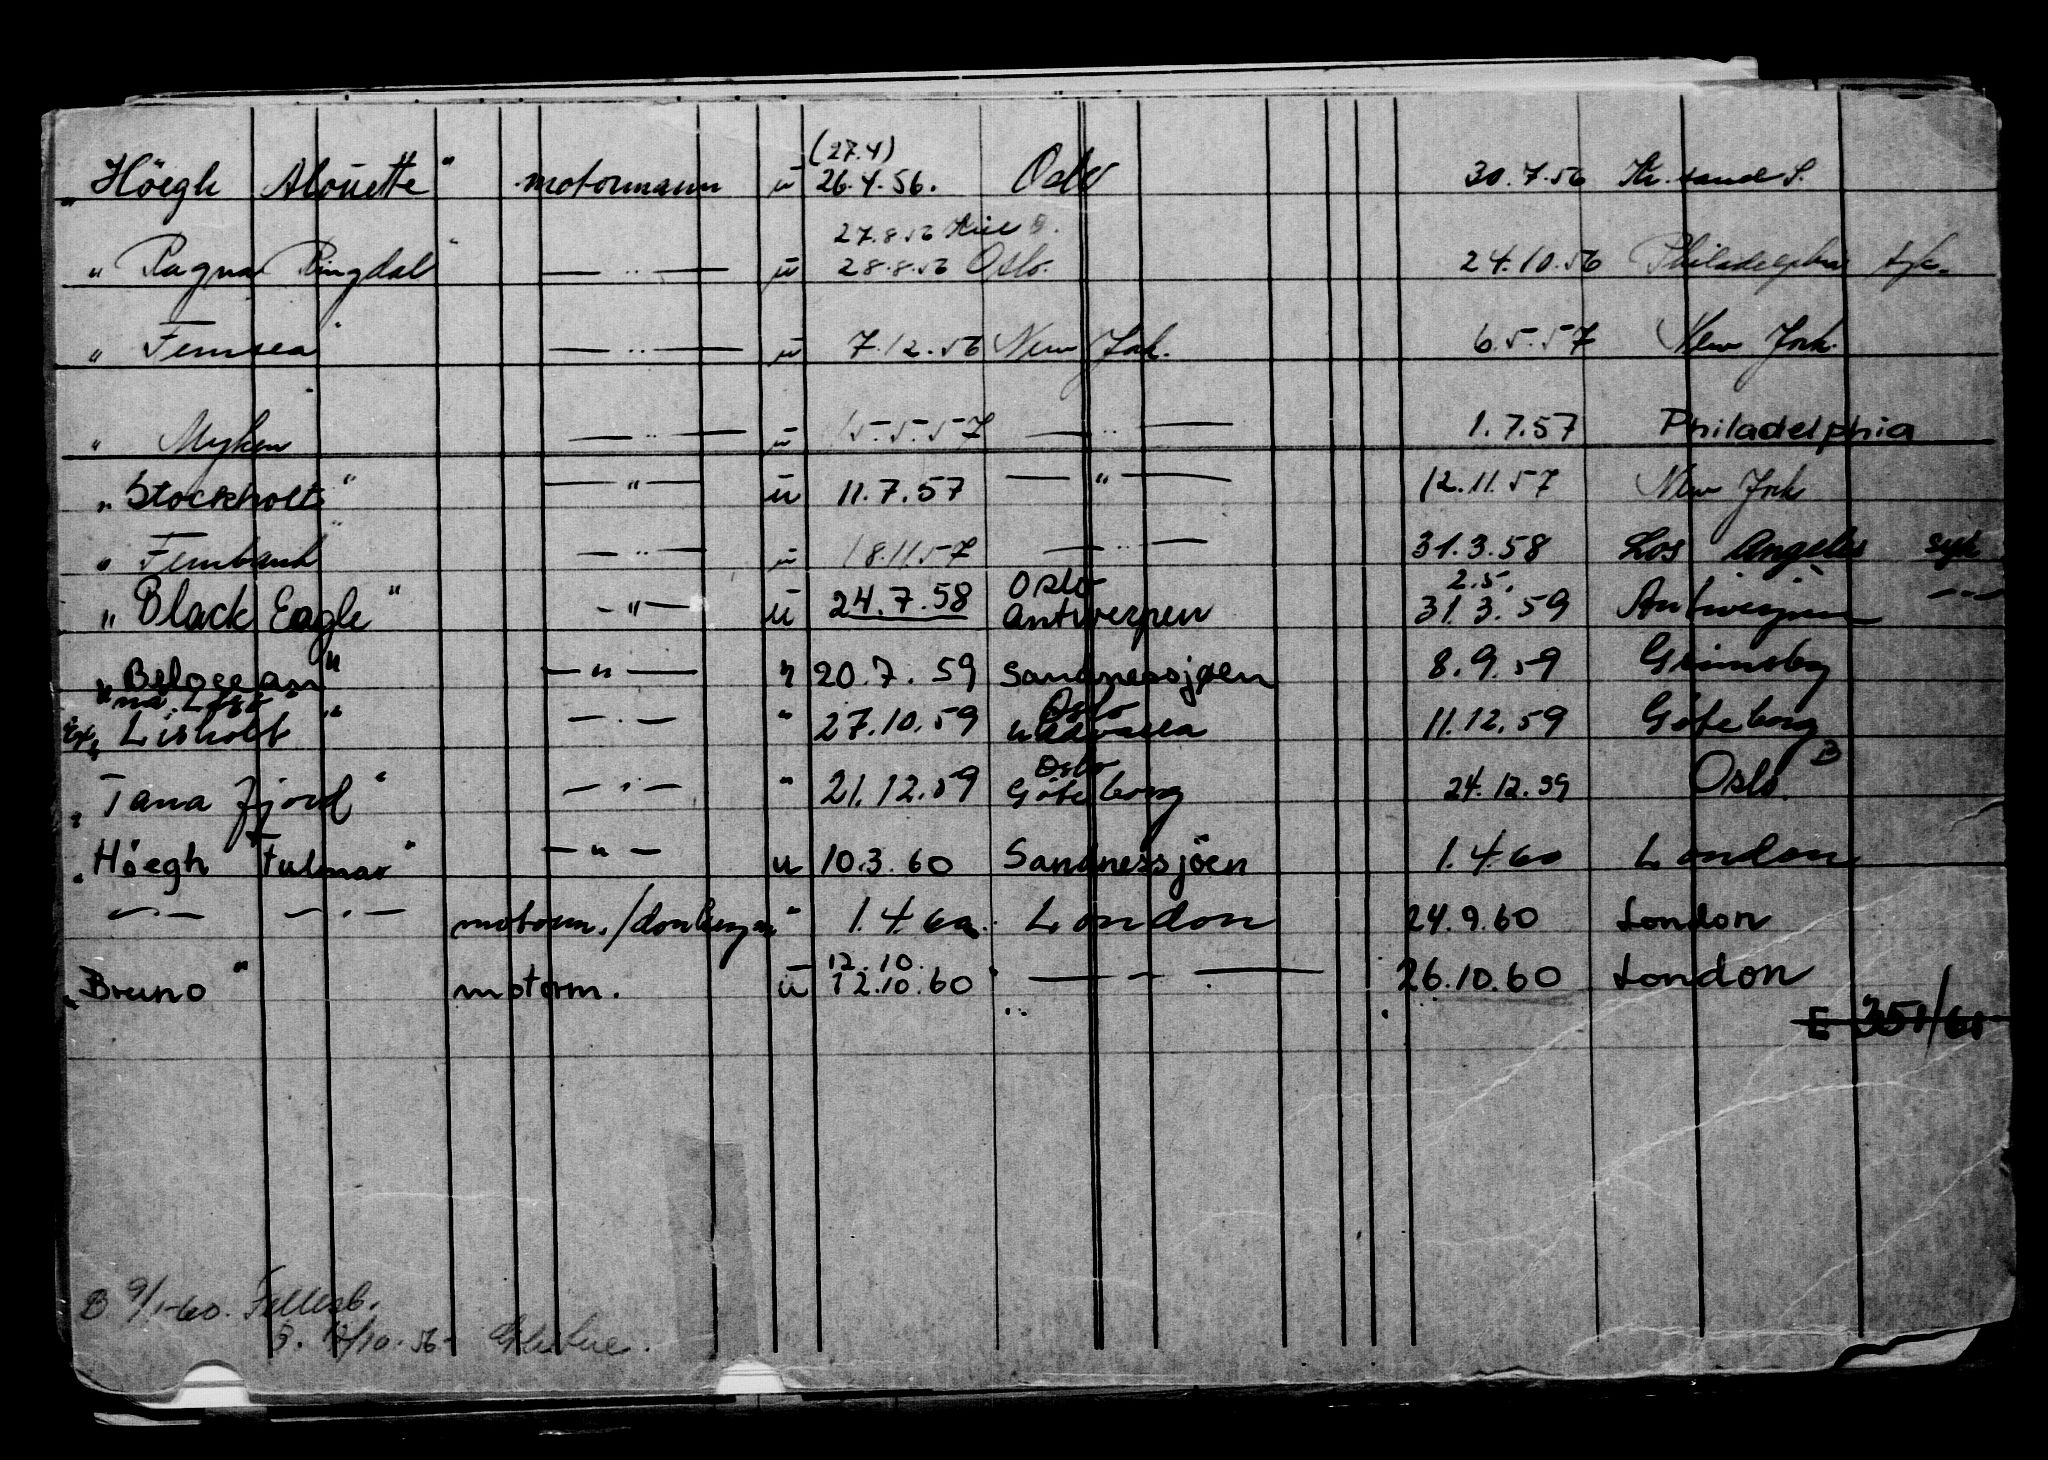 (27.4)
"Höegh Alouette" motormann u 26.4.56. Oslo 30.7.56 Kr.sand S.
27.8.56
"Ragna Ringdal" — " — u 28.8.56 Oslo. 24.10.56 Philadelphia syk.
"Fernsea" — " — u 7.12.56 New York. 6.5.57 New York
"Myken" — " — u 15.5.57 — " — 1.7.57 Philadelphia
"Stockholt" — " — u 11.7.57 — " — 12.11.57 New York
"Fernbank" — " — u 18.11.57 — " — 31.3.58 Los Angeles syk
Oslo 2.5.
"Black Eagle" — " — u 24.7.58 Antwerpen 31.3.59 Antwerpen — " —
"Belocean" — " — " 20.7.59 Sandnessjøen 8.9.59 Grimsby
Oslo
"Lisholt" — " — " 27.10.59 Uddevalla 11.12.59 Göteborg
Oslo B
"Tana fjord" — " — " 21.12.59 Göteborg 24.12.59 Oslo
"Höegh Fulmar" — " — u 10.3.60 Sandnessjöen 1.4.60 London
— " — — " — motorm./donkeym " 1.4.60. London 24.9.60 London
12.10.
"Bruno" motorm. u 12.10.60 — " — 26.10.60 London
E 351/61
B 9/1-60. Fellesb.